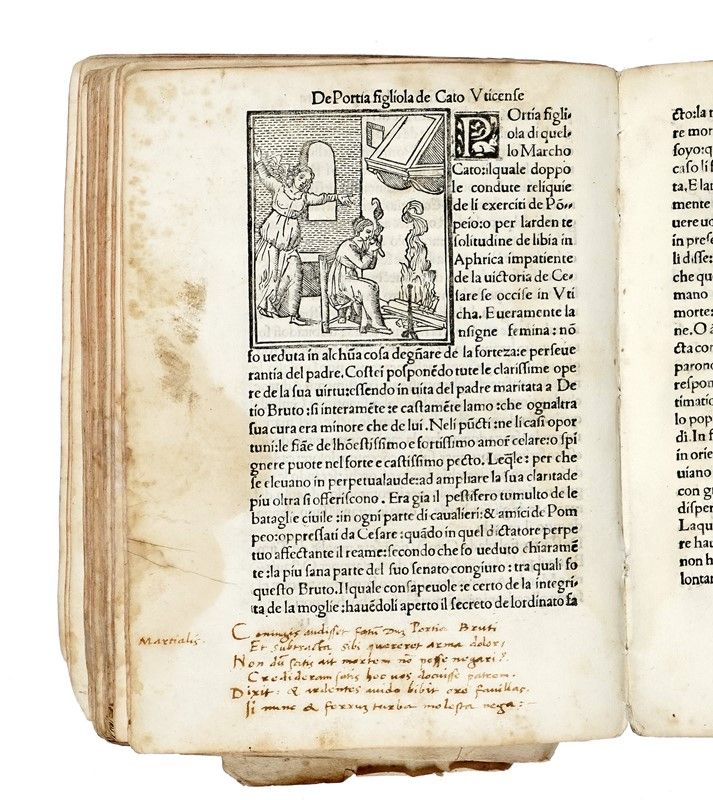 De Portia figliola de Cato Vticense
POrtia figli-
ola di quel-
lo Marcho
Cato:ilquale doppo
le condute reliquie
de li exerciti de Põ-
peio:o per larden te
solitudine de libia in
Aphrica impatiente
de la uictoria de Ce-
sare se occise in Vti
cha. E ueramente la
nsigne femina: nõ
fo ueduta in alchũa cosa degñare de la forteza:e perseue
rantia del padre. Costei posponẽdo tute le clarissime ope
re de la sua uirtu:essendo in uita del padre maritata a De
tio Bruto :si interamẽte :e castamẽte lamo :che ognaltra
sua cura era minore che de lui. Neli pũcti :ne li casi opor
tuni:le fiãe de lhõestissimo e fortissimo amor celare:o spi
gnere puote nel forte e castissimo pecto. Leq̃le: per che
se eleuano in perpetua laude:ad ampliare la sua claritade
piu oltra si offeriscono. Era gia il pestifero tumulto de le
bataglie ciuile :in ogni parte di caualieri:& amici de Pom
peo:oppressati da Cesare: quãdo in quel dictatore perpe
tuo affectante il reame:secondo che fo ueduto chiaramẽ
te :la piu sana parte del suo senato congiuro : tra quali fo
questo Bruto. Il quale consapeuole :e certo de la integri-
ta de la moglie :hauẽdoli aperto il secreto de lordinato fa
Martialis.
Coniugis audisset fatũ cuz Portia Bruti
Et subtracta sibi quereret arma dolor;
Non dũ scitis ait mortem nõ posse negari?
Credideram satis hoc uos docuisse patrem.
Dixit: & ardentes auido bibit ore fauillas.
Si nunc & ferruz turba molesta nega:-
cto:la
re mor
soyo:q
caso li
ta. E la
mente
uere uo
in prese
li disse:
che qu
mano
morte:
ne. O
cta con
parono
respon
timatio
lo pop
di. In f
in orie
uiano
con g
disper
La qu
re hau
non h
lontar